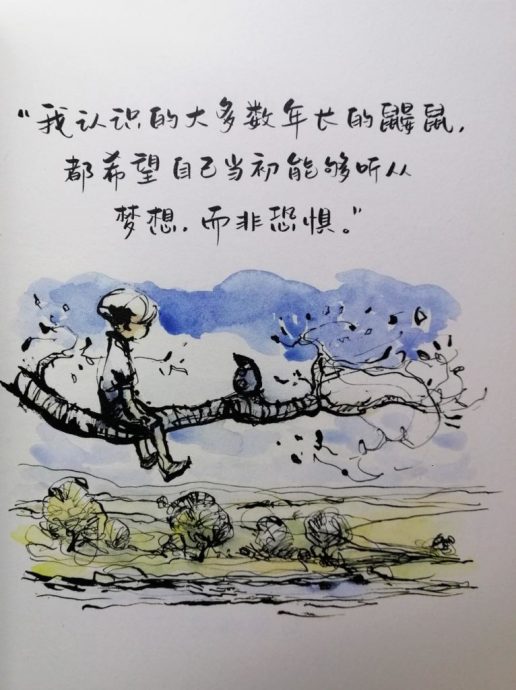 “我认识的大多数年长的鼹鼠，
都希望自己当初能够听从
梦想，而非恐惧。”